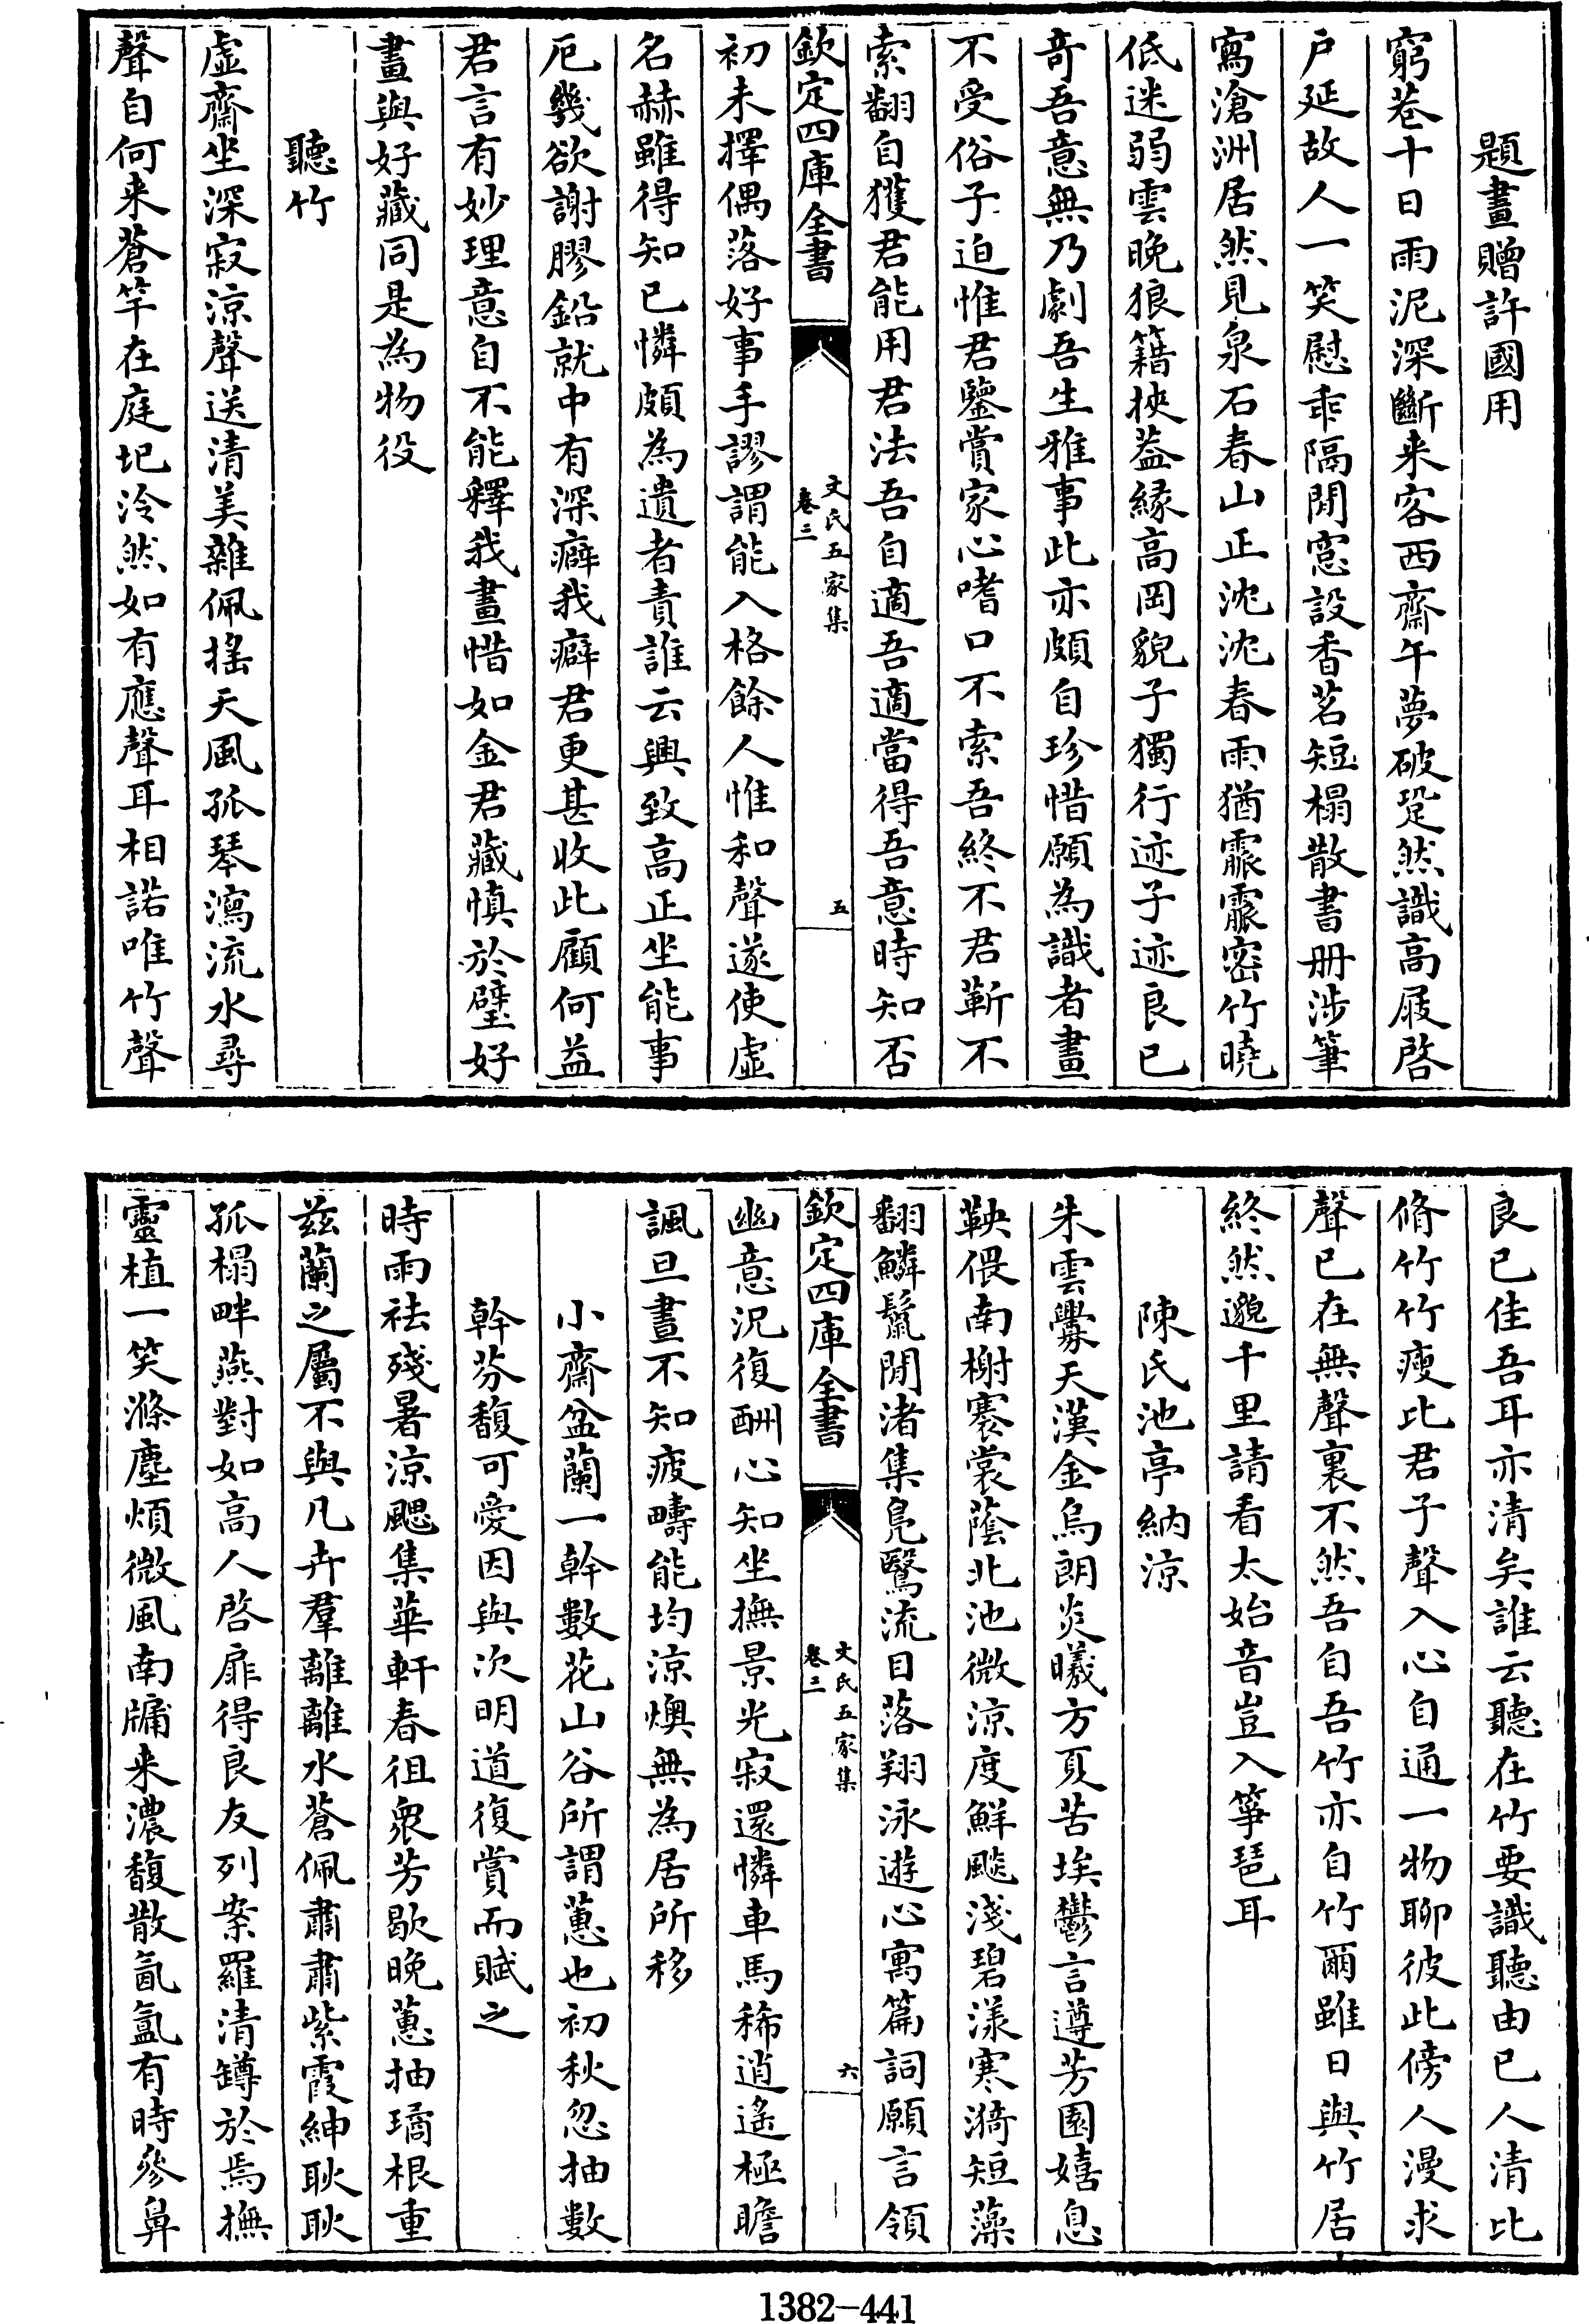 題畫贈許國用
窮巷十日雨泥深斷来客西齋午夢破跫然識高屐啓
户延故人一笑慰乖隔閒窻設香茗短榻散書册涉筆
寫滄洲居然見泉石春山正沈沈春雨猶霢霢密竹曉
低迷弱雲晚狼籍挾葢緣高岡貌子獨行迹子迹良已
奇吾意無乃劇吾生雅事此亦頗自珍惜願為識者畫
不受俗子迫惟君鑒賞家心嗜口不索吾終不君靳不
索翻自獲君能用君法吾自適吾適當得吾意時知否
欽定四庫全書
文氏五家集
卷三
五
初未擇偶落好事手謬謂能入格餘人惟和聲遂使虛
名赫雖得知已憐頗為遺者責誰云興致高正坐能事
厄幾欲謝膠鉛就中有深癖我癖君更甚收此顧何益
君言有妙理意自不能釋我畫惜如金君藏慎於璧好
畫與好藏同是為物役
聽竹
虛齋坐深寂涼聲送清美雜佩摇天風孤琴瀉流水尋
聲自何来蒼竿在庭圯泠然如有應聲耳相諾唯竹聲
良已佳吾耳亦清矣誰云聽在竹要識聽由已人清比
脩竹竹瘦比君子聲入心自通一物聊彼此傍人漫求
聲已在無聲裏不然吾自吾竹亦自竹爾雖日與竹居
終然邈千里請看太始音豈入箏琶耳
陳氏池亭納涼
朱雲爨天漢金烏朗炎曦方夏苦埃鬱言遵芳園嬉息
鞅偎南榭褰裳蔭北池微涼度鮮飈淺碧漾寒漪短藻
翻鱗鬛閒渚集鳧鷖流目落翔泳遊心寓篇詞願言領
欽定四庫全書
文氏五家集
卷三
六
幽意況復酬心知坐撫景光寂還憐車馬稀逍遙極瞻
諷旦晝不知疲疇能均涼燠無為居所移
小齋盆蘭一幹數花山谷所謂蕙也初秋忽抽數
幹芬馥可愛因與次明道復賞而賦之
時雨祛殘暑涼颸集華軒春徂衆芳歇晚蕙抽瑀根重
兹蘭之屬不與凡卉羣離離水蒼佩肅肅紫霞紳耿耿
孤榻畔燕對如高人啓扉得良友列案羅清罇於焉撫
靈植一笑滌塵煩微風南牖来濃馥散氤氲有時參鼻
1382-441